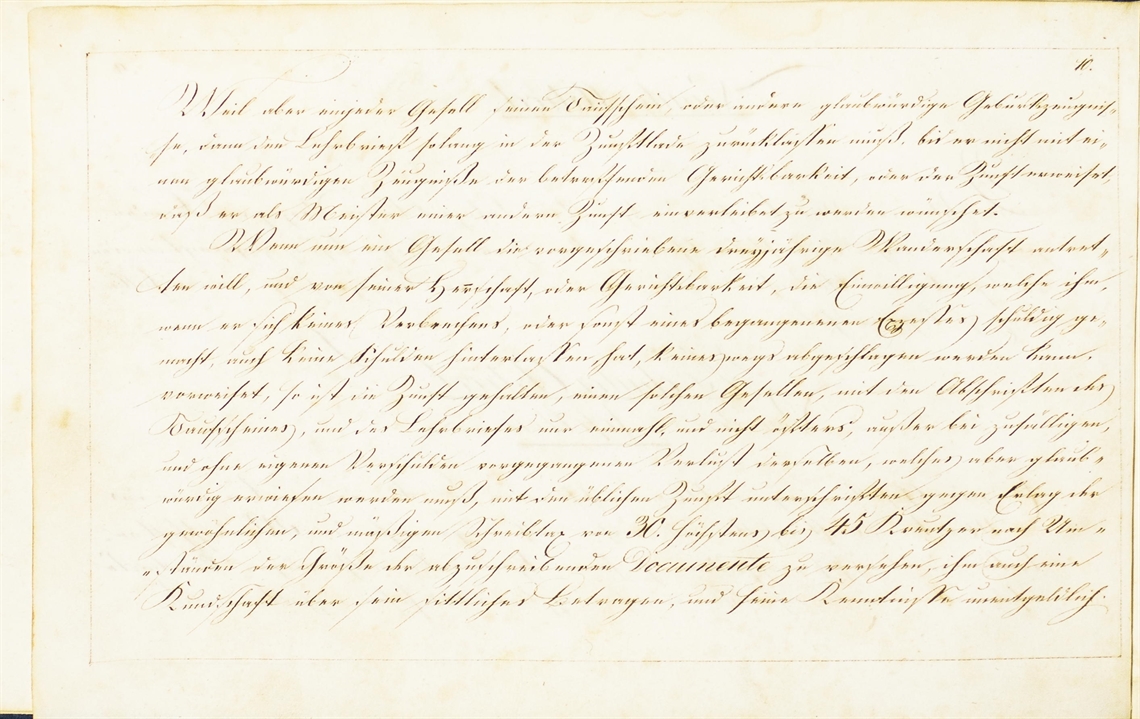 10.
Weil aber einjeder Gesell seinen Taufschein, oder andere glaubwürdige Geburtszeugnis-
se, dann den Lehrbrief solang in der Zunftlade zurücklassen muß, bis er nicht mit ei-
nem glaubwürdigen Zeugniße der betreffenden Gerichtsbarkeit, oder der Zunft erweiset,
daß er als Meister einer andern Zunft einverleibet zu werden wünschet.
Wenn nun ein Gesell die vorgeschriebene dreyjährige Wanderschaft antret-
ten will, und von seiner Herrschaft, oder Gerichtsbarkeit, die Einwilligung, welche ihm,
wenn er sich keines Verbrechens, oder sonst eines begangenenen Excesses schuldig ge-
macht, auch keine Schulden hinterlassen hat, keineswegs abgeschlagen werden kann,
vorweiset, so ist die Zunft gehalten, einen solchen Gesellen, mit den Abschriften des
Taufscheines, und des Lehrbriefes nur einmahl, und nicht öfters, außer bei zufälligen,
und ohne eigenen Verschulden vorgegangenen Verlust derselben, welches aber glaub-
würdig erwiesen werden muß, mit den üblichen Zunft unterschriften gegen Erlag der
gewöhnlichen, und mäßigen Schreibtax von 30. höchstens bis 45 Kreutzer nach Um-
ständen der Größe der abzuschreibenden Documente zu versehen, ihm auch eine
Kundschaft über sein sittliches Betragen, und seine Kenntnisse unentgeldlich